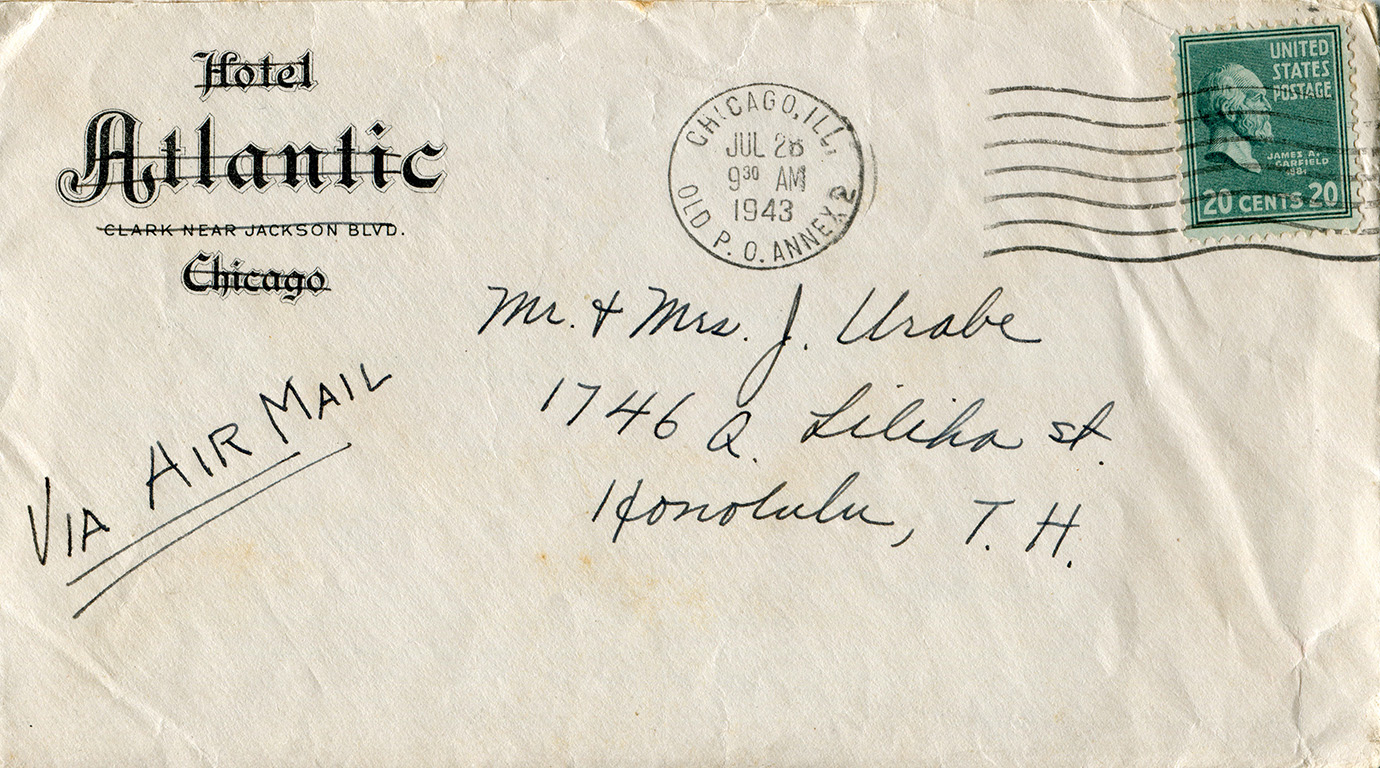 Hotel
Atlantic
CLARK NEAR JACKSON BLVD.
Chicago
CHICAGO, ILL.
JUL 28
9 30 AM
1943
OLD P. O. ANNEX 2
UNITED
STATES
POSTAGE
JAMES A.
GARFIELD
1881
20 CENTS 20
Mr. & Mrs. J. Urabe
1746 Q. Liliha st.
Honolulu, T. H.
VIA AIR MAIL